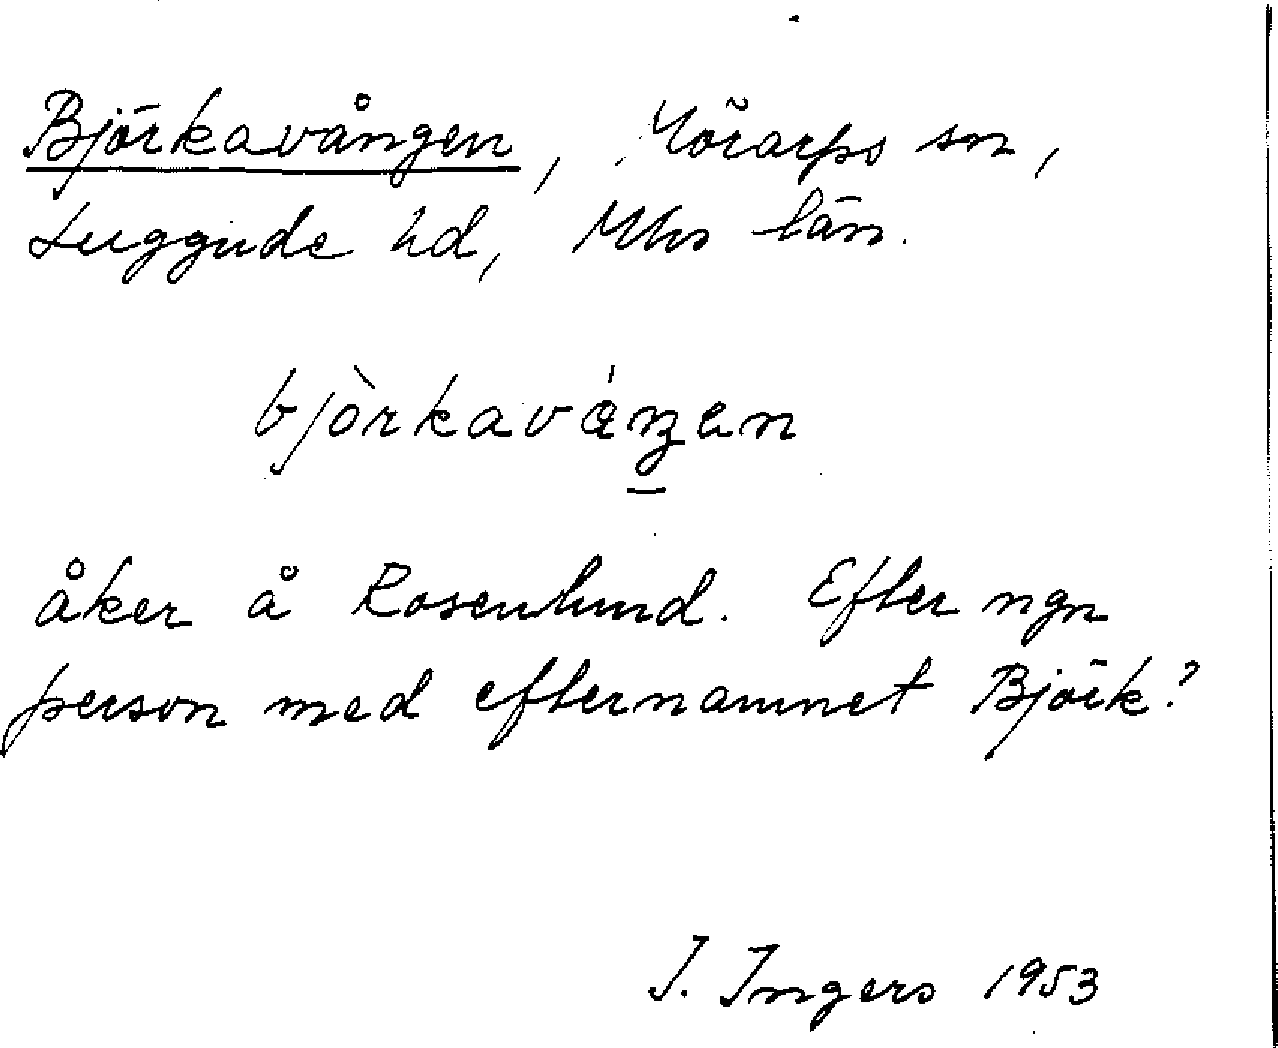 Björkavången, Mörarps sn,
Luggude hd, Mhs län.
bjòrkaváŋen
åker å Rosenlund. Efter ngn
person med efternamnet Björk?
I. Ingers 1953